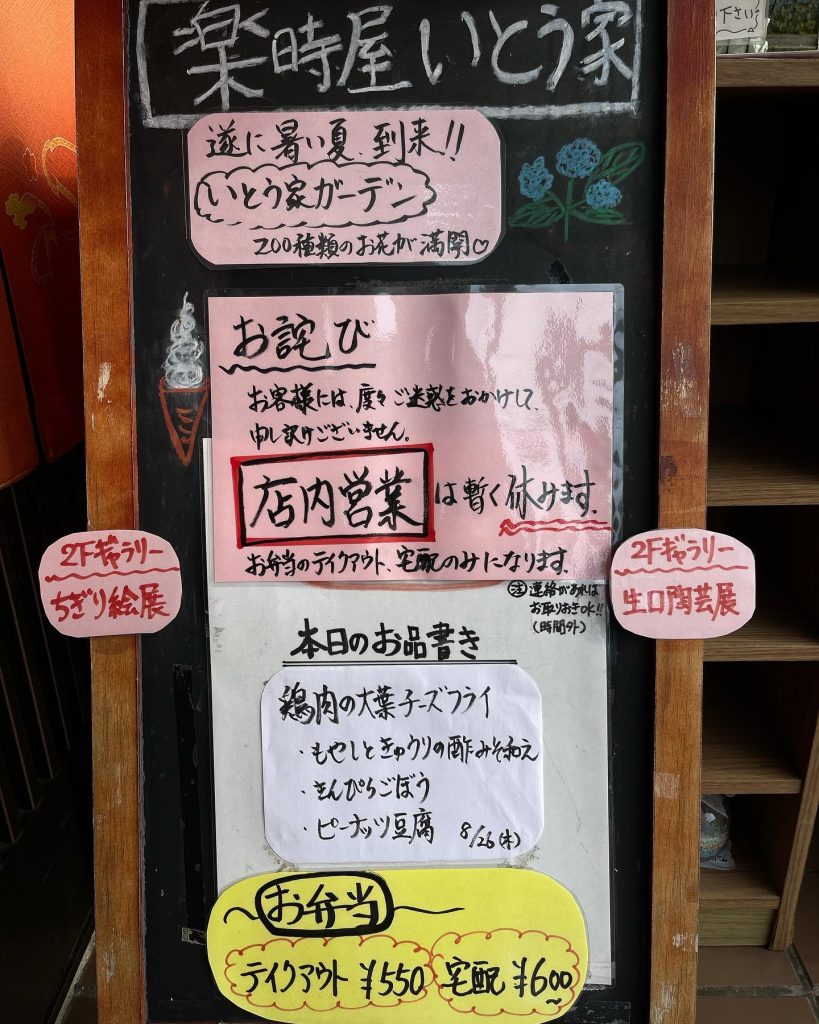 下さい
楽時屋いとう家
遂に暑い夏、到来!!
いとう家ガーデン
200種類のお花が満開♡
お詫び
お客様には、度々ご迷惑をおかけして、
申し訳けございません。
店内営業は暫く休みます。
お弁当のテイクアウト、宅配のみになります。
㊟連絡があれば
お取りおきOK!!
(時間外)
2Fギャラリー
ちぎり絵展
2Fギャラリー
生口陶芸展
本日のお品書き
鶏肉の大葉チーズフライ
・もやしときゅうりの酢みそ和え
・きんぴらごぼう
・ピーナッツ豆腐 8/26(木)
お弁当
テイクアウト ¥550 宅配 ¥600